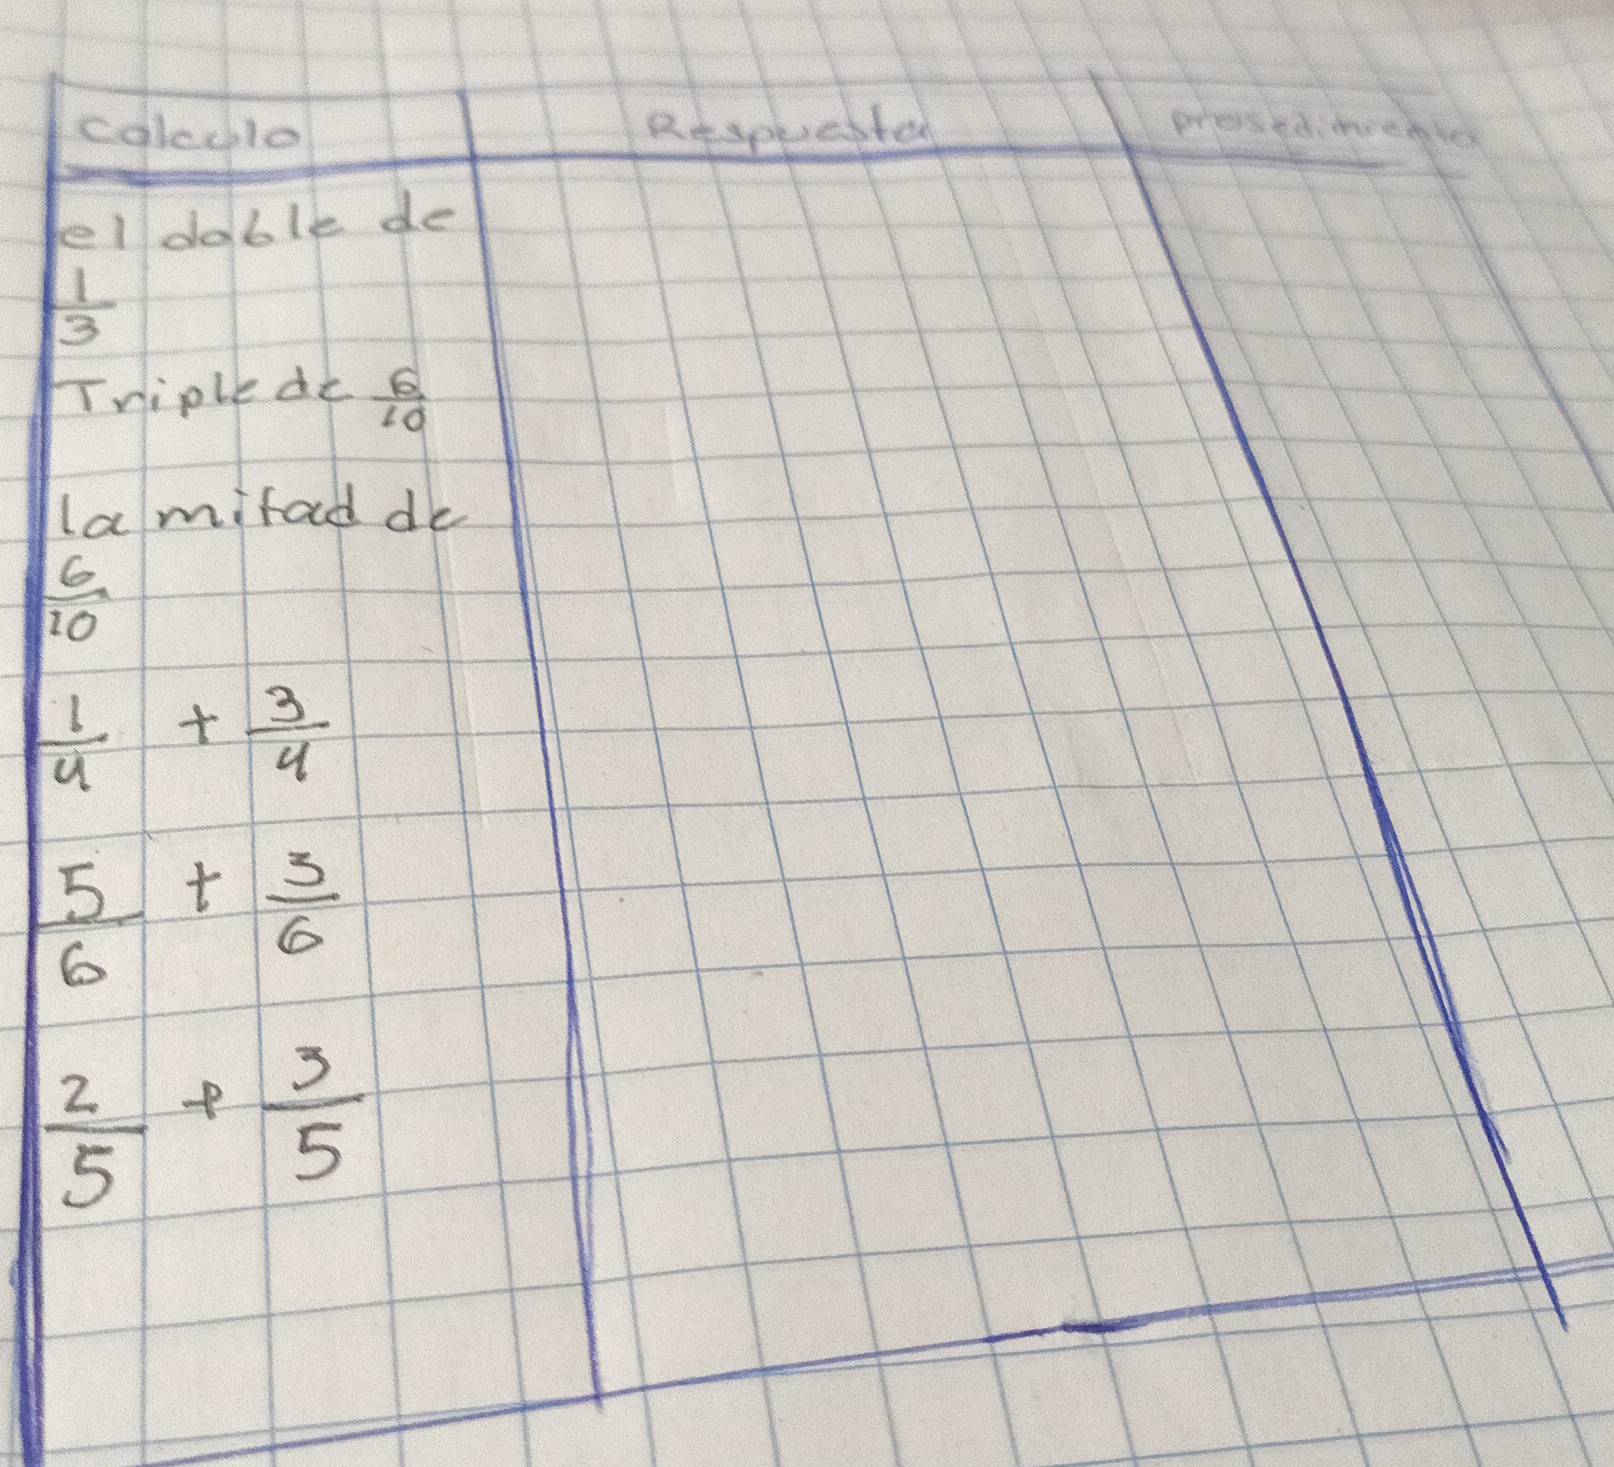 calculo Respuesta prosedimiento
el doble de
1/3
Triple de 6/10
la mitad de
6/10
1/4 + 3/4
5/6 + 3/6
2/5 + 3/5